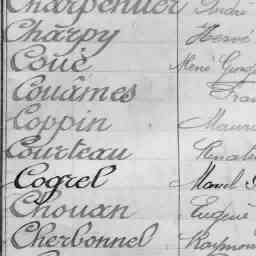 Charpentier André
Charpy Hervé
Coüc René
Couâmes
Coppin
Courteau
Cogrel
Chouan Eugène
Cherbonnel Raymon